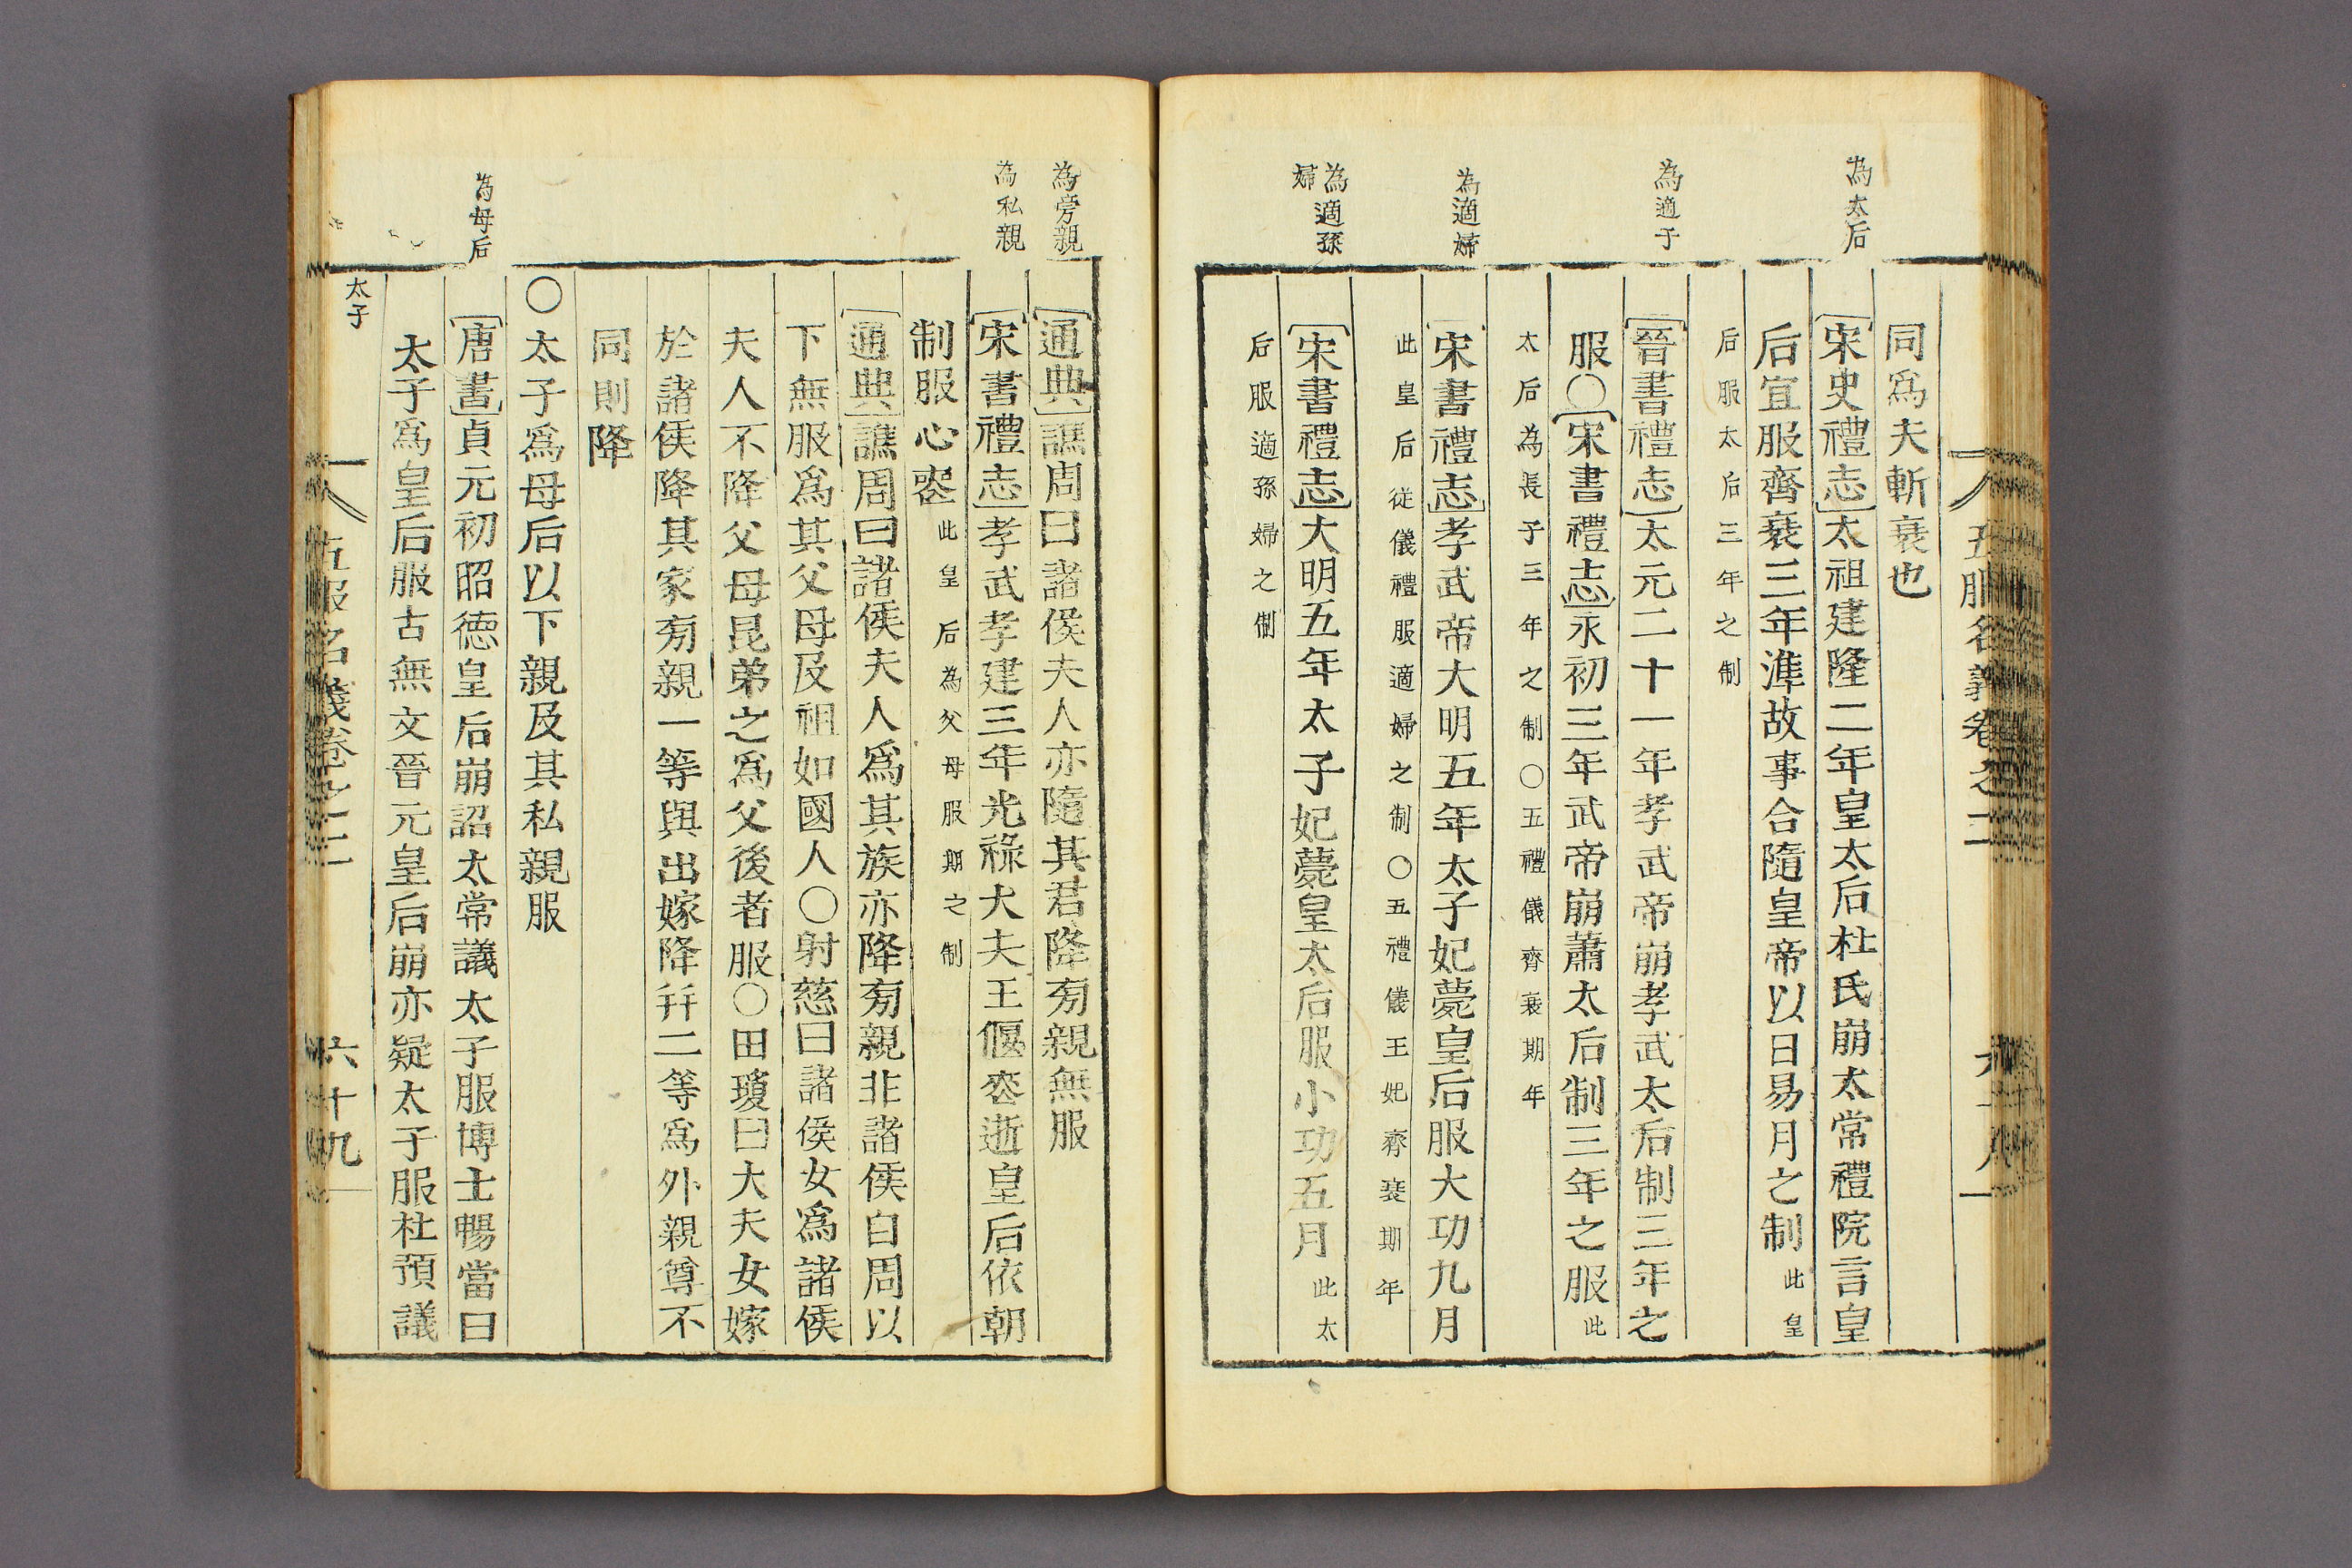 五服名義卷之二
同爲夫斬衰也
為太后
[宋史禮志]太祖建隆二年皇太后杜氏崩太常禮院言皇
后宜服齊衰三年準故事合隨皇帝以日易月之制 此皇
后服太后三年之制
為適子
[晉書禮志]太元二十一年孝武帝崩孝武太后制三年之
服○[宋書禮志]永初三年武帝崩蕭太后制三年之服 此
太后為長子三年之制○五禮儀齊衰期年
為適婦
[宋書禮志]孝武帝大明五年太子妃薨皇后服大功九月
此皇后從儀禮服適婦之制○五禮儀王妃齊衰期年
為適孫
婦
[宋書禮志]大明五年太子妃薨皇太后服小功五月 此太
后服適孫婦之制
為旁親
[通典]譙周曰諸侯夫人亦隨其君降旁親無服
為私親
[宋書禮志]孝武孝建三年光祿大夫王偃喪逝皇后依朝
制服心喪 此皇后為父母服期之制
[通典]譙周曰諸侯夫人爲其族亦降旁親非諸侯自周以
下無服爲其父母及祖如國人○射慈曰諸侯女爲諸侯
夫人不降父母昆弟之爲父後者服○田瓊曰大夫女嫁
於諸侯降其家旁親一等與出嫁降幷二等爲外親尊不
同則降
○太子爲母后以下親及其私親服
為母后
[唐書]貞元初昭德皇后崩詔太常議太子服博士暢當曰
太子爲皇后服古無文晉元皇后崩亦疑太子服杜預議
太子
五服名義卷之二
六十九